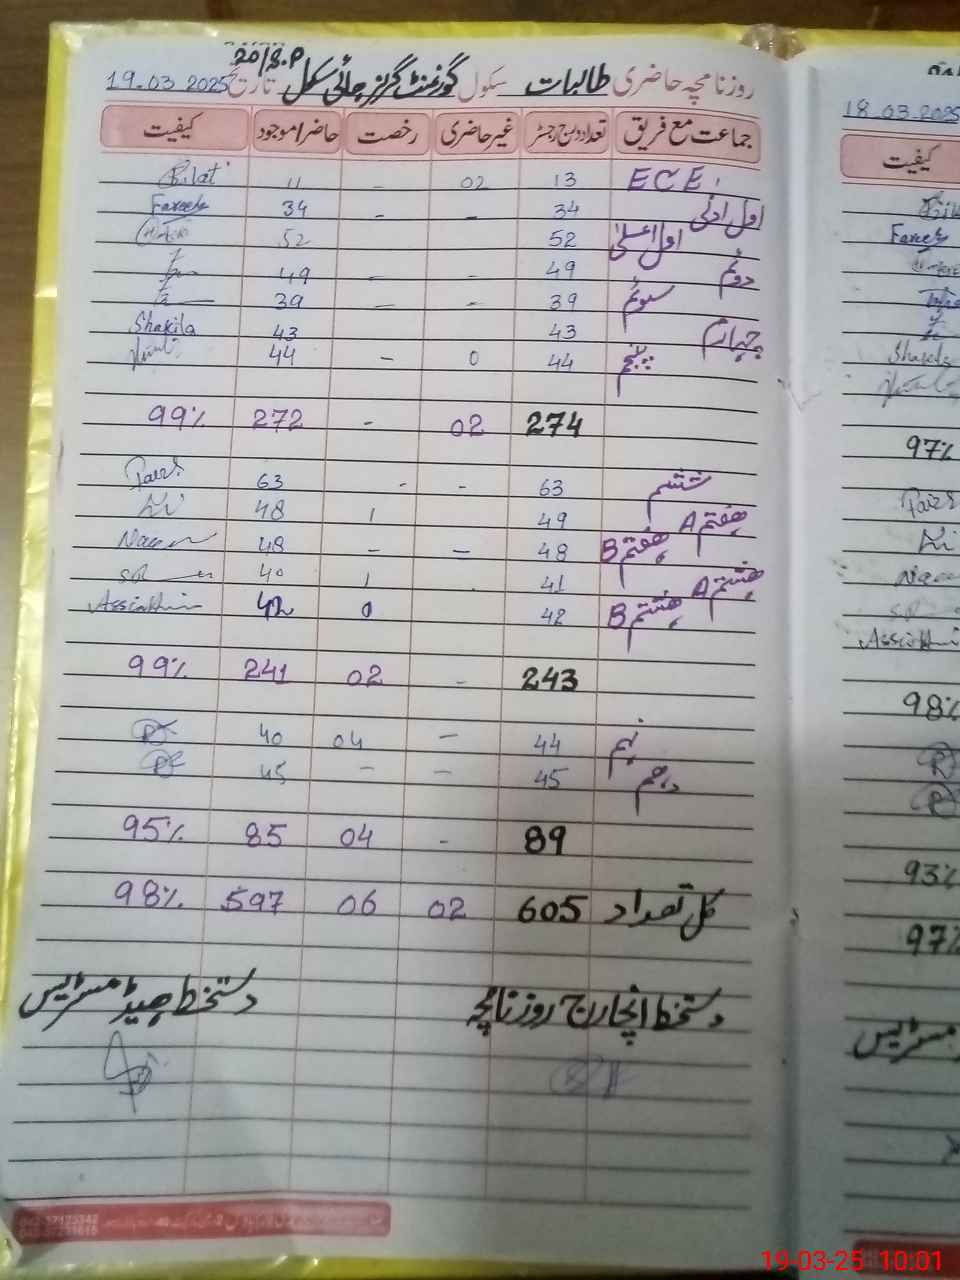 20/8.P
روزنامچہ حاضری طالبات سکول گورنمنٹ گرلز ہائی سکول تاریخ 19.03.2025
جماعت مع فریق تعداد درج رجسٹر غیر حاضری رخصت حاضر/موجود کیفیت
ECE 13 02 - 11
اول ادنیٰ 34 - - 34 Fareeha
اول اعلیٰ 52 52
دوئم 49 - - 49
سوئم 39 - - 39
چہارم 43 43 Shakila
پنجم 44 0 - 44
274 02 - 272 99%
ششم 63 - - 63
ہفتم A 49 1 48
ہفتم B 48 - - 48
ہشتم A 41 . 1 40
ہشتم B 42 0 42
243 - 02 241 99%
نہم 44 - 04 40
دہم 45 - - 45
89 - 04 85 95%
کل تعداد 605 02 06 597 98%
دستخط انچارج روزنامچہ دستخط ہیڈ مسٹریس
18.03.2025
کیفیت
Shakila
97%
98%
93%
97%
مسٹریس
19-03-25 10:01